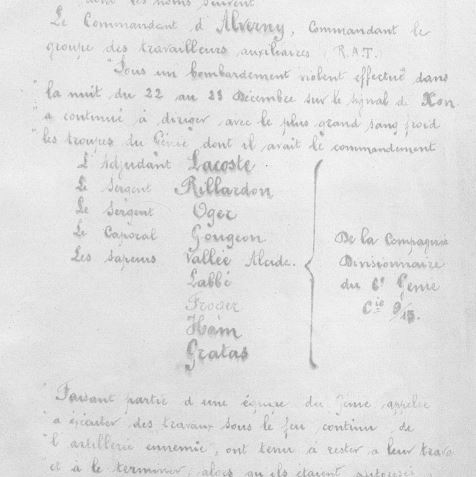 dont les noms suivent
Le Commandant d'Alverny, Commandant le
groupe des travailleurs auxiliaires (R.A.T.)
"Sous un bombardement violent effectué dans
la nuit du 22 au 23 Décembre sur le signal de Xon
a continué à diriger avec le plus grand sang froid
les troupes du Génie dont il avait le commandement
L'Adjudant Lacoste
Le Sergent Rillardon
Le Sergent Oger
Le Caporal Gougeon
Les Sapeurs Vallée Alcide.
Labbé
Froger
Ham
Gratas
De la Compagnie
Divisionnaire
du 6e Génie
Cie 9/13.
"Faisant partie d'une équipe du Génie appelée
à exécuter des travaux sous le feu continu de
l'artillerie ennemie, ont tenu à rester à leur trava
et à le terminer, alors qu'ils étaient autorisés